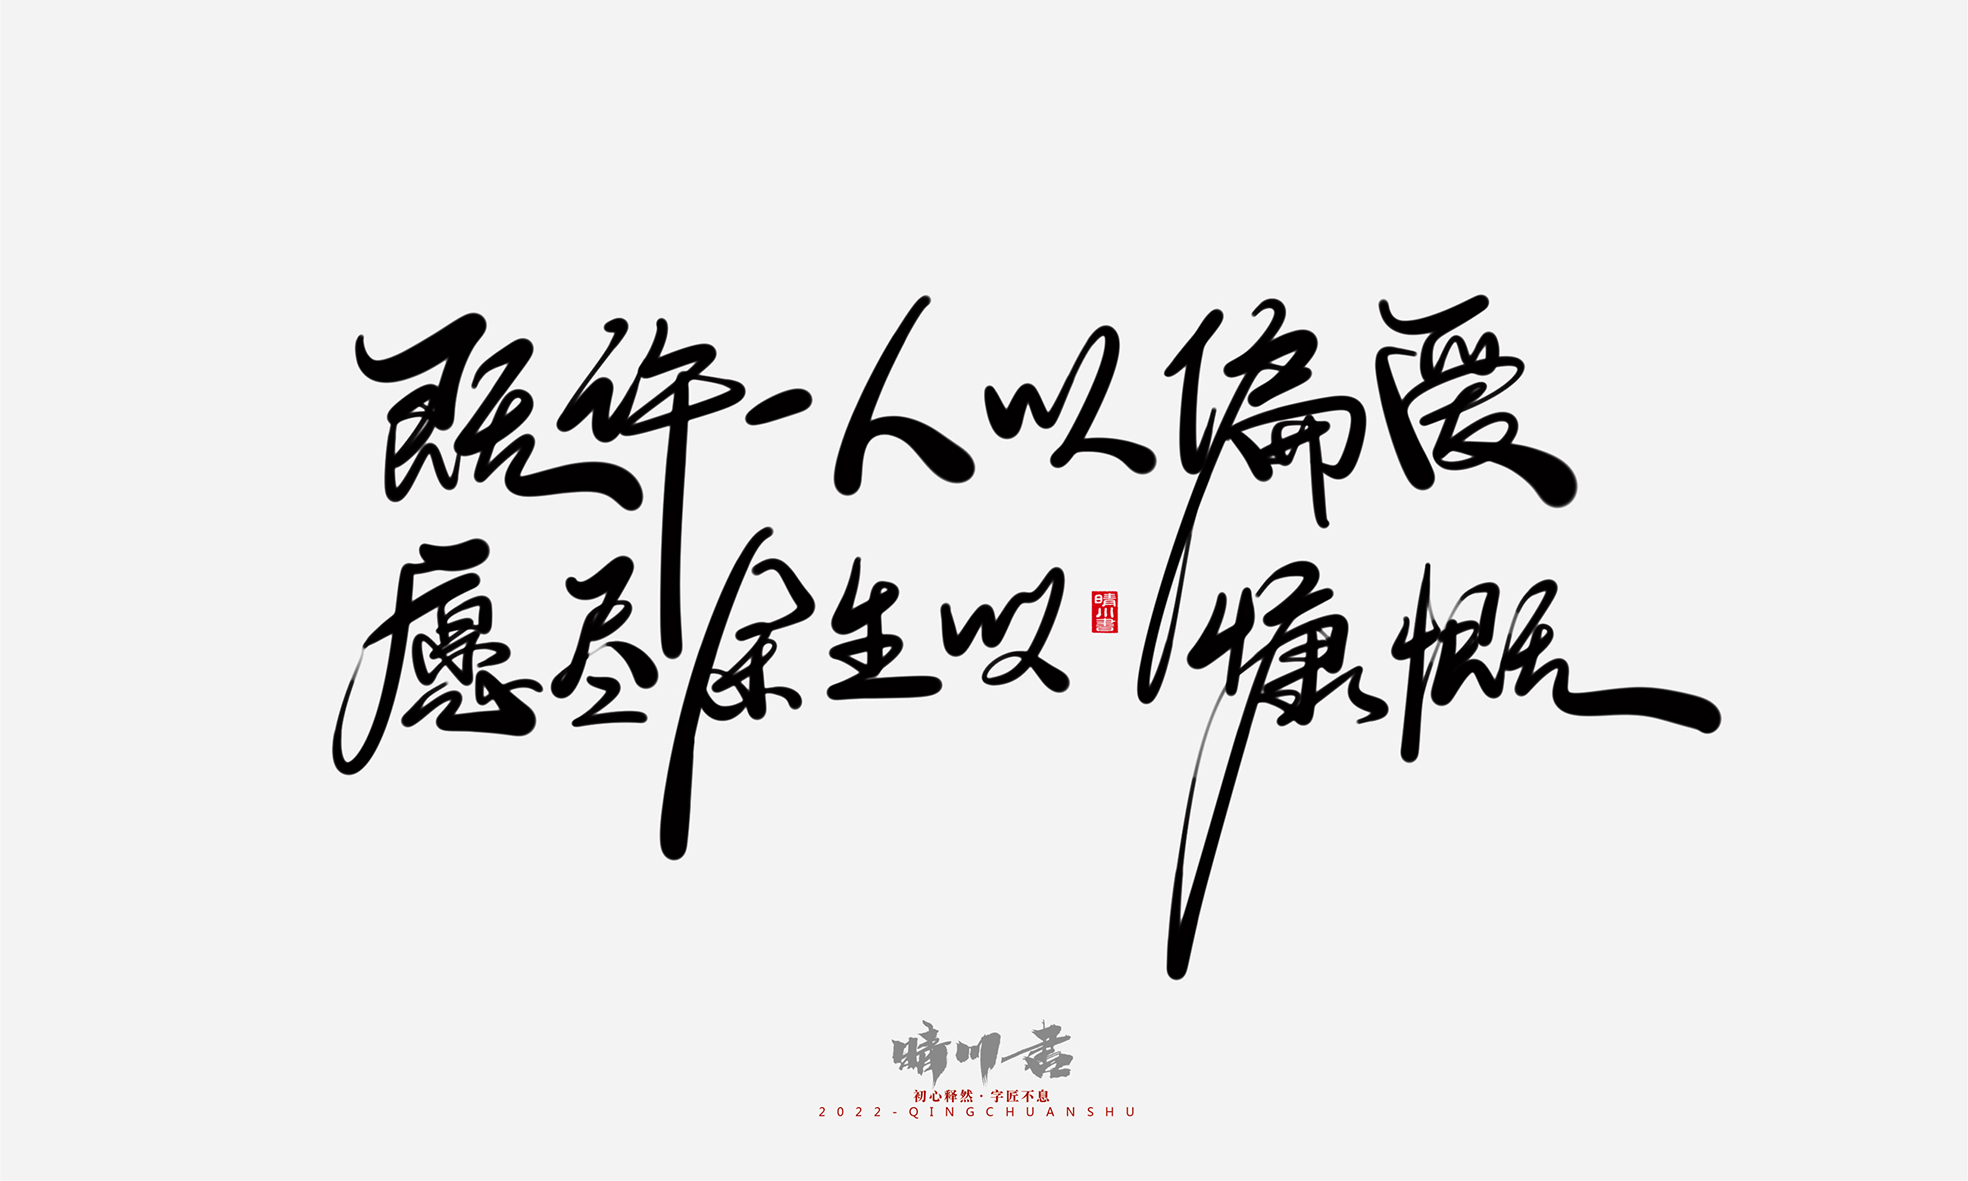 既许一人以偏爱
愿尽余生以慷慨
晴川书
晴川书
初心释然·字匠不息
2022-QINGCHUANSHU